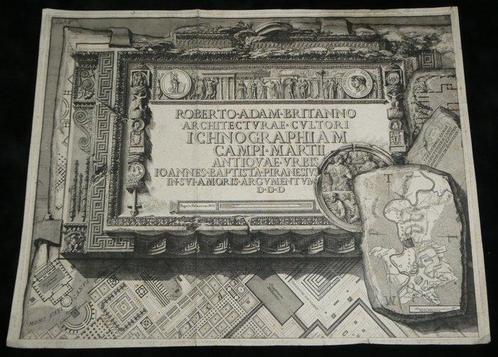 ROBERTO·ADAM·BRITANNO
ARCHITECTVRAE·CVLTORI
ICHNOGRAPHIAM
CAMPI·MARTII
ANTIQVAE·VRBIS
IOANNES·BAPTISTA·PIRANESIVS
IN·SVI·AMORIS·ARGVMENTVM
D·D·D